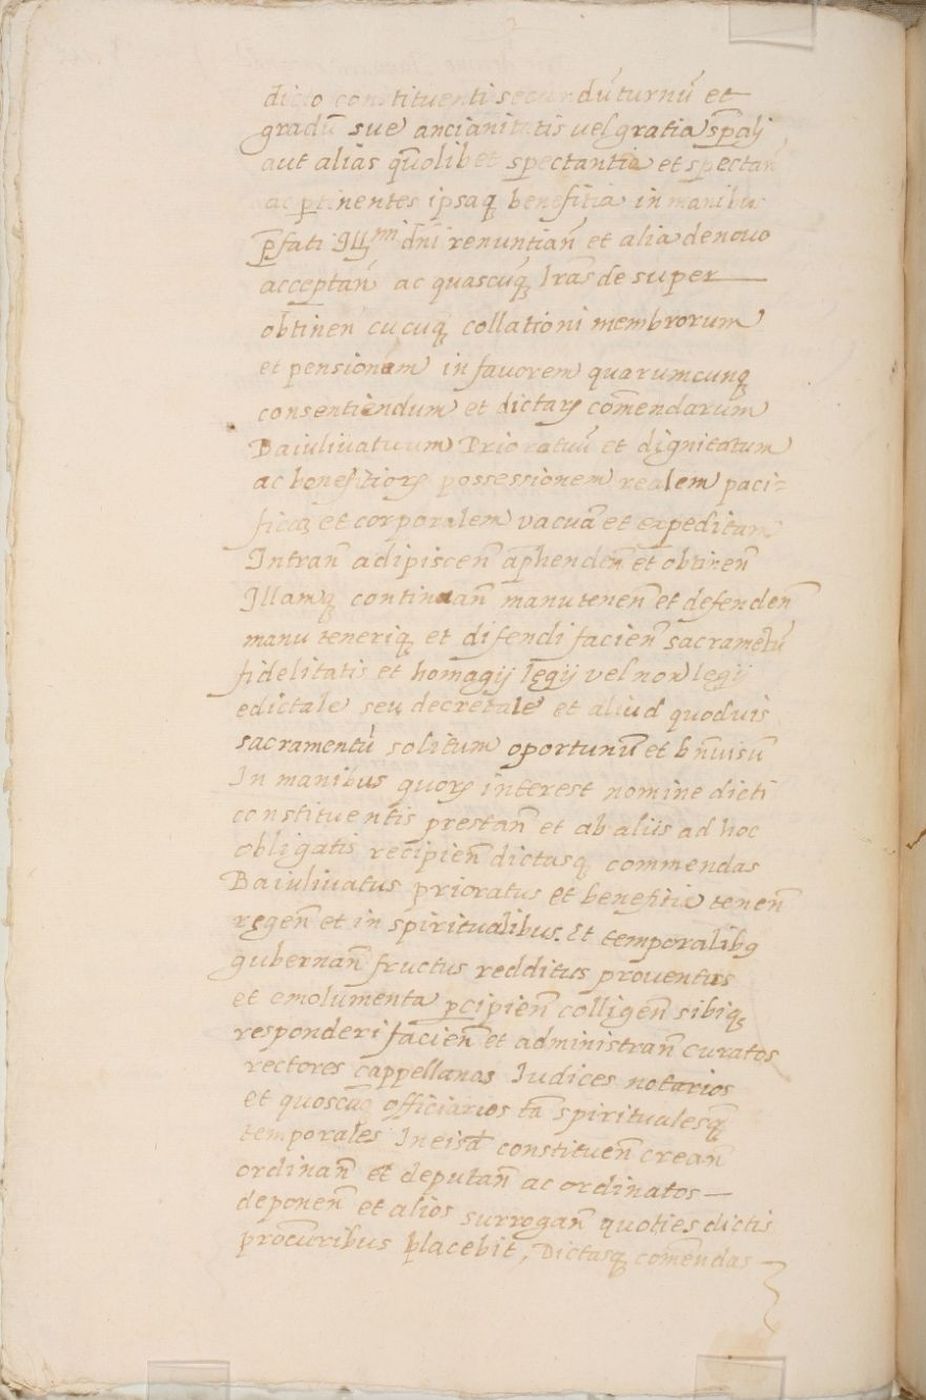 dicto constituenti secundũ turnũ et
gradũ sue ancianitatis vel gratia spãlj
aut alias quõlibet spectantia et spectañ
ac ptinentes ipsaq benefitia in manibus
pfati Illmi dñi renuntiañ et alia de novo
acceptañ ac quascũq lr̃as de super
obtineñ cũcuq collationi membrorum
et pensionem in favorem quarumcunq
consentiendum et dictarꝝ cõmendarum
Baiulivatuum Prioratuũ et dignitatum
ac benefitiorꝝ possessionem realem paci-
ficaʒ et corporalem vacuã et expeditam
Intrañ adipisceñ apħendeñ et obtineñ
Illamq continuañ manuteneñ et defendeñ
manu teneriq et difendi facieñ sacrametũ
fidelitatis et homagij legij vel non legij
edictale seu decretale et aliud quodvis
sacramentũ solitum oportunũ et bñvisũ
In manibus quorꝝ interest nomine dicti
constituentis prestañ et ab aliis ad hoc
obligatis recipieñ dictasq commendas
Baiulivatus prioratus et benefitia teneñ
regeñ et in spiritualibus. Et temporalibꝫ
gubernañ fructus redditus proventus
et emolumenta pcipieñ colligeñ sibiq
responderi facieñ et administrañ curatos
rectores cappellanos Iudices notarios
et quoscũq officiarios tã spiritualesq̃
temporales In eisđ constitueñ creañ
ordinañ et deputañ ac ordinatos
deponeñ et alios surrogañ quoties dictis
procũribus placebit, Dictasq comẽndas